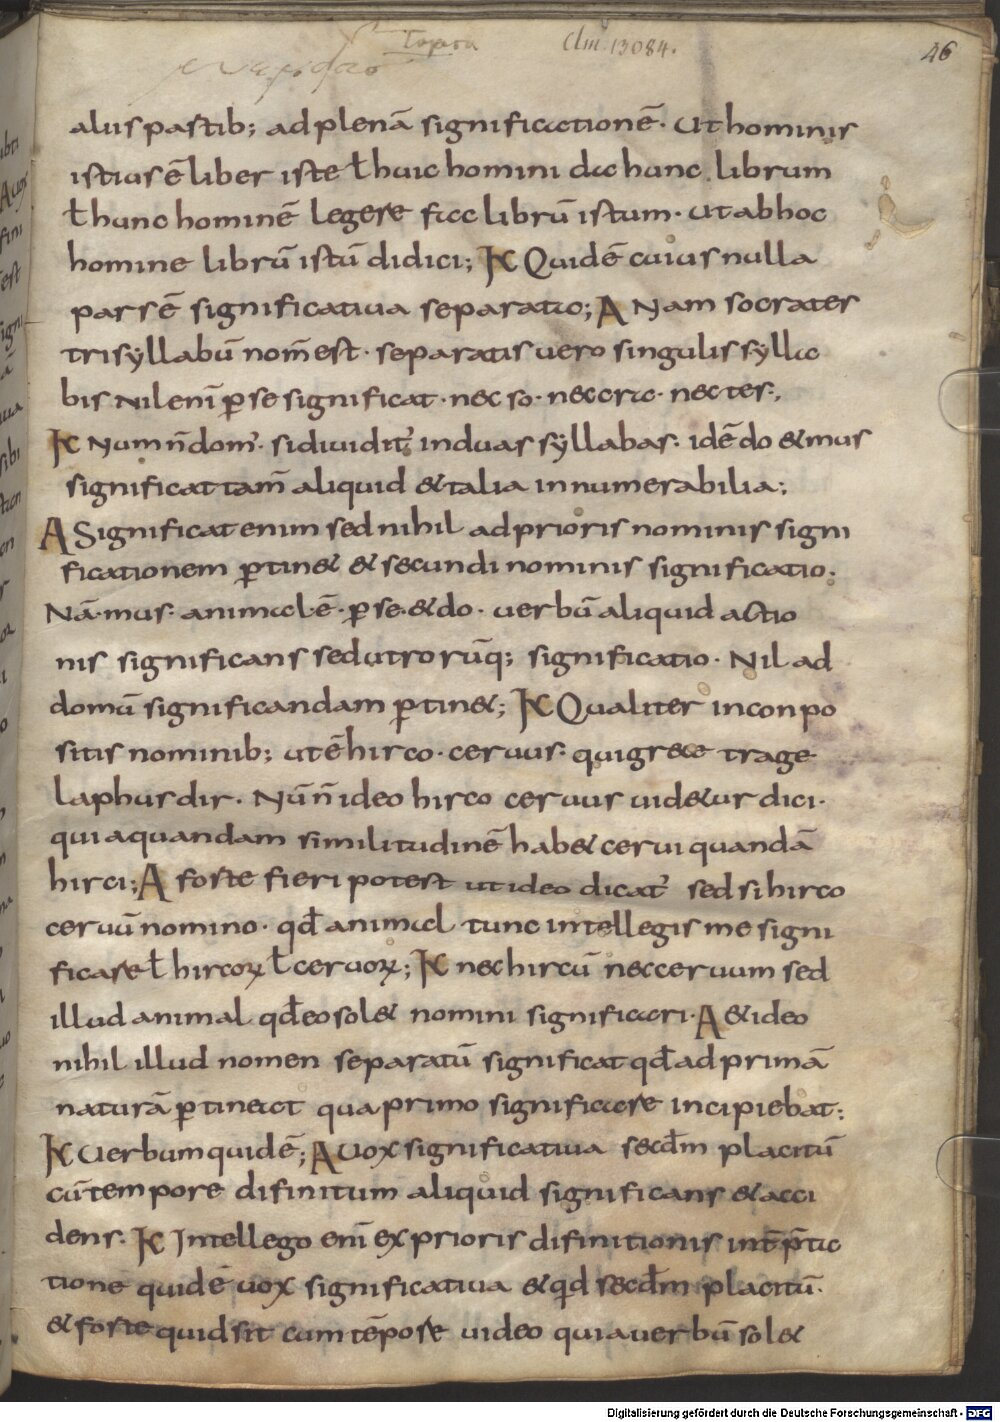 Clm 13084.
46
aluis partib; ad plenā significationē. Ut hominis
istius ē liber iste ł huic homini da hunc librum
ł hunc hominē legere fac librū istum. ut ab hoc
homine librū istū didici; K Quid ē cuius nulla
pars ē significativa separata; A Nam socrates
trisyllabū nom̄ est. separatis vero singulis sylla
bis nil eni ꝑ se significat. nec so. nec cra. nec tes.,
K Num n̄ dom᾽. si dividit᾽ in duas syllabas. idē do & mus
significat tam̄ aliquid & talia innumerabilia;
A Significat enim sed nihil ad prioris nominis signi
ficationem ꝑtin& & secundi nominis significatio.
Nā. mus. animal. ē. ꝑ se. & do. verbū aliquid actio
nis significans sed utrorūq; significatio. Nil ad
domū significandam ꝑtin&; K Qualiter in conpo
sitis nominib; ut ē hirco. cervus. qui grece trage
laphus dir. Nū n̄ ideo hirco cervus vid&ur dici.
quia quandam similitudinē hab& cervi quandā
hirci; A forte fieri potest ut ideo dicat᾽ sed si hirco
cervū nomino. qđ animal tunc intellegis me signi
ficare ł hircoꝝ ł cervoꝝ; K nec hircū nec cervum sed
illud animal qđ eo sol& nomini significari. A & ideo
nihil illud nomen separatū significat qđ ad primā
naturā ꝑtineat qua primo significare incipiebat.
K Verbum quid ē; A vox significativa secđm placitū
cū tempore difinitum aliquid significans & acci
dens. K Intellego eni ex prioris difinitionis int̄p̄ta
tione quid ē vox significativa & qđ secđm placitū.
& forte quid sit cum tēpore video quia verbū sol&
Digitalisierung gefördert durch die Deutsche Forschungsgemeinschaft - DFG